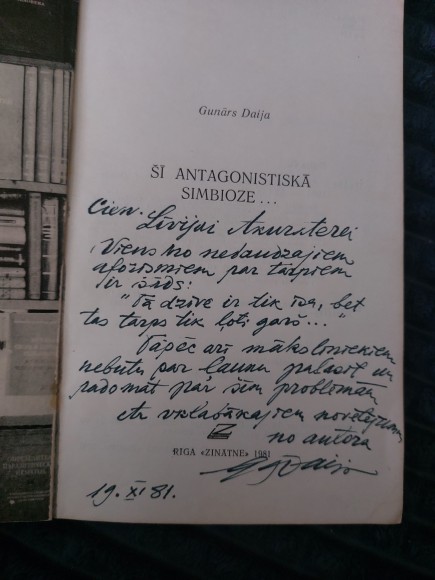 Gunārs Daija
ŠĪ ANTAGONISTISKĀ
SIMBIOZE...
Cien. Līvijai Akurāterei
Viens no nedaudzajiem
aforismiem par tārpiem
ir šāds:
"Tā dzīve ir tik īsa, bet
tas tārps tik ļoti garš..."
Tāpēc arī māksliniekiem
nebūtu par ļaunu palasīt un
padomāt par šīm problēmām
Ar vislabākajiem novēlējumiem
no autora
RĪGA «ZINĀTNE» 1981
G. Daija
19. XI 81.